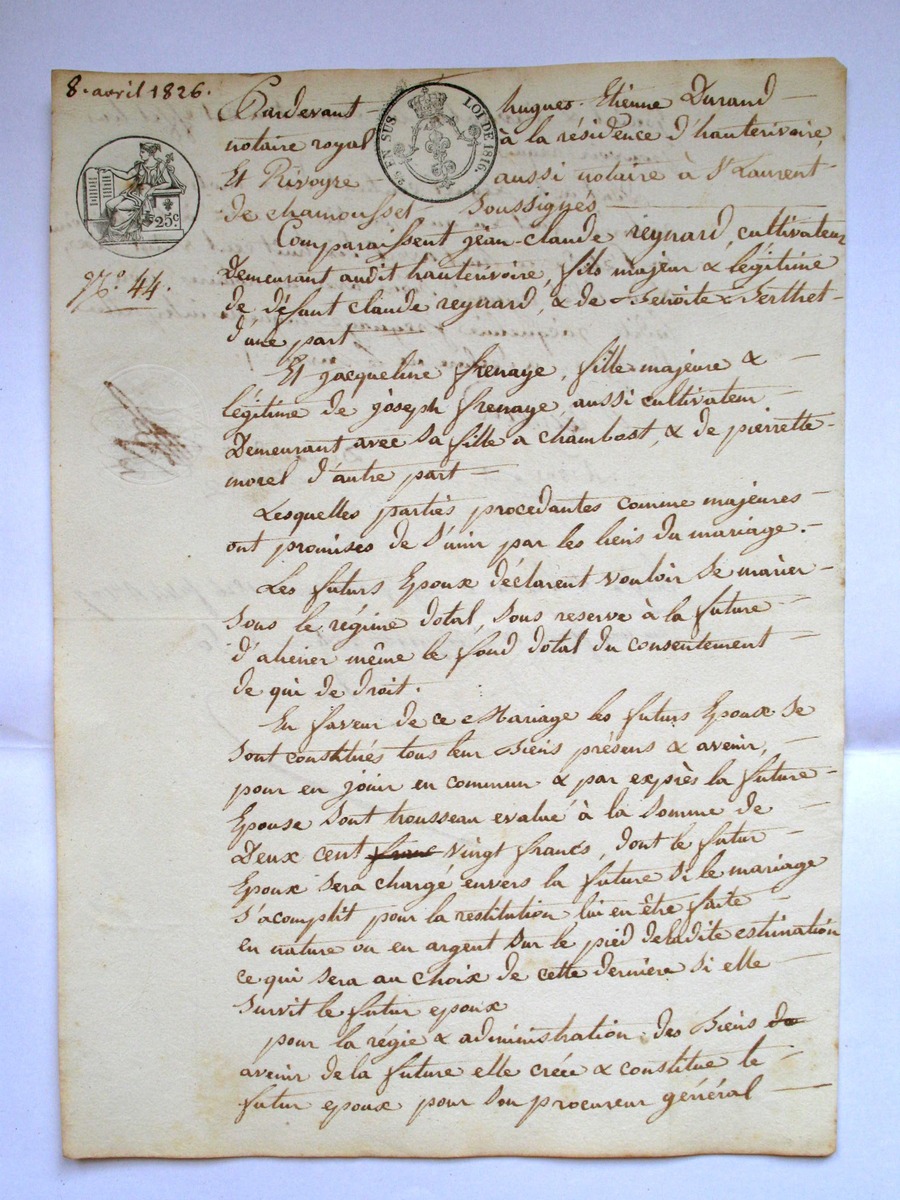 8. avril 1826.
25 EN SUS. LOI DE 1816.
25 c.
N.° 44.
Pardevant hugues Etienne Durand
notaire royal à la résidence d'hauterivoire,
Et Rivoyre aussi notaire à St Laurent
de chamousset soussignés
Comparaissent jean-claude reynard, cultivateur
Demeurant audit hauterivoire, fils majeur & légitime
de défunt claude reynard, & de Benoite Berthet
d'une part
Et jacqueline frenaye, fille majeure &
légitime de joseph frenaye, aussi cultivateur
Demeurant avec sa fille a chambost, & de pierrette
morel d'autre part
Lesquelles parties procedantes comme majeures
ont promises de s'unir par les liens du mariage.
Les futurs Epoux déclarent vouloir se marier
sous le régime dotal, sous reserve à la future
d'aliener même le fond dotal du consentement
de qui de droit.
En faveur de ce Mariage les futurs Epoux se
sont constitués tous leur Biens présens & avenir,
pour en jouir en commun & par exprès la future
Epouse sont trousseau evalué à la somme de
Deux cent franc vingt francs, dont le futur
Epoux sera chargé envers la future si le mariage
s'acomplit pour la restitution lui en être faite
en nature ou en argent sur le pied deladite estimation
ce qui sera au choix de cette derniere si elle
survit le futur epoux
pour la régie & administration des Biens de
avenir de la future elle crée & constitue le
futur epoux pour son procureur général